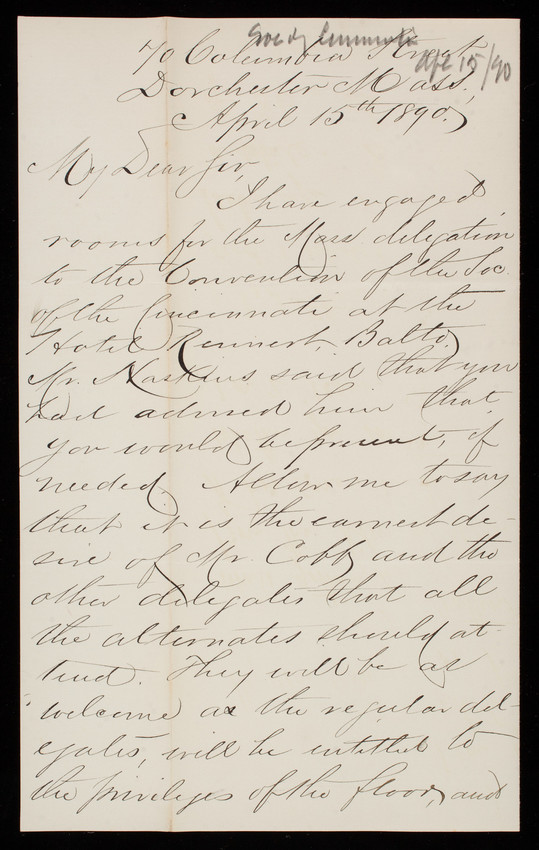 Soc of Cincinnati
Apl 15/90
70 Columbia Street,
Dorchester Mass.,
April 15th 1890.
My Dear Sir,
I have engaged
rooms for the Mass. delegation
to the Convention of the Soc.
of the Cincinnati at the
Hotel Rennert, Balto.
Mr. Haskins said that you
had advised him that
you would be present, if
needed. Allow me to say
that it is the earnest de-
sire of Mr. Cobb and the
other delegates that all
the alternates should at-
tend. They will be as
welcome as the regular del-
egates, will be entitled to
the privileges of the floor, and